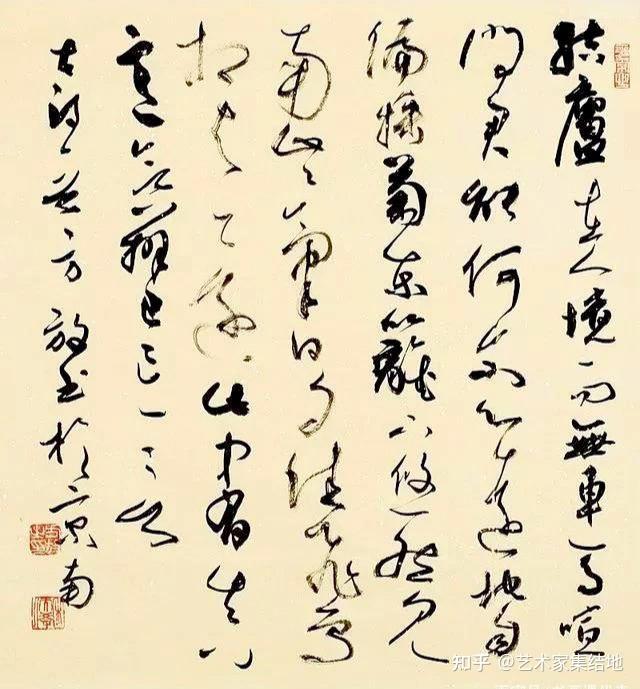 結廬在人境而無車馬喧
問君能何尔心遠地自
偏採菊東籬下悠然見
南山山氣日夕佳飛鳥
相与還此中有真
意欲辨已忘言
古詩一首方放书於京南
知乎 @艺术家集结地